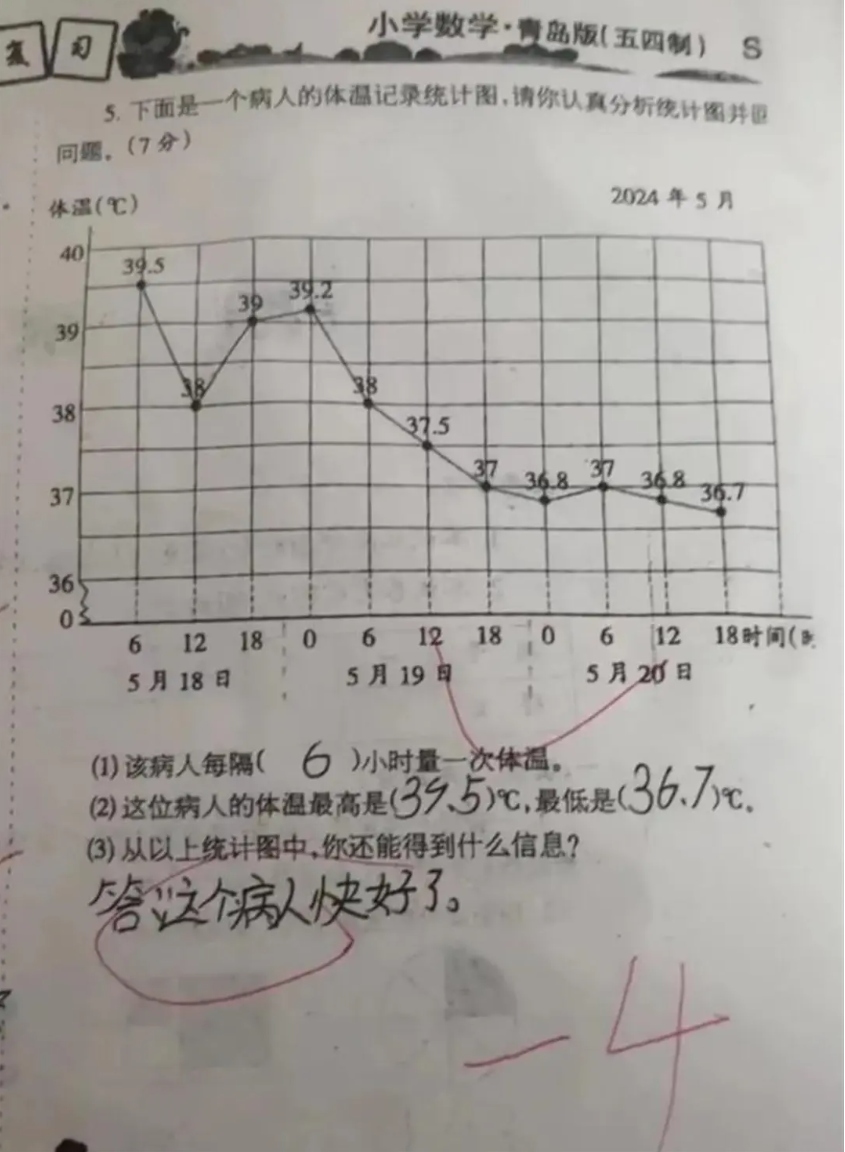 复 习
小学数学·青岛版(五四制) S
5. 下面是一个病人的体温记录统计图,请你认真分析统计图并回
问题。(7分)
体温(℃)
2024年5月
40
39.5
39.2
39
39
38
38
38
37.5
37
37
37
36.8
36.8
36.7
36
0
6 12 18 0 6 12 18 0 6 12 18 时间(时
5月18日 5月19日 5月20日
(1)该病人每隔( 6 )小时量一次体温。
(2)这位病人的体温最高是(39.5)℃,最低是(36.7)℃。
(3)从以上统计图中,你还能得到什么信息?
答:这个病人快好了。
-4